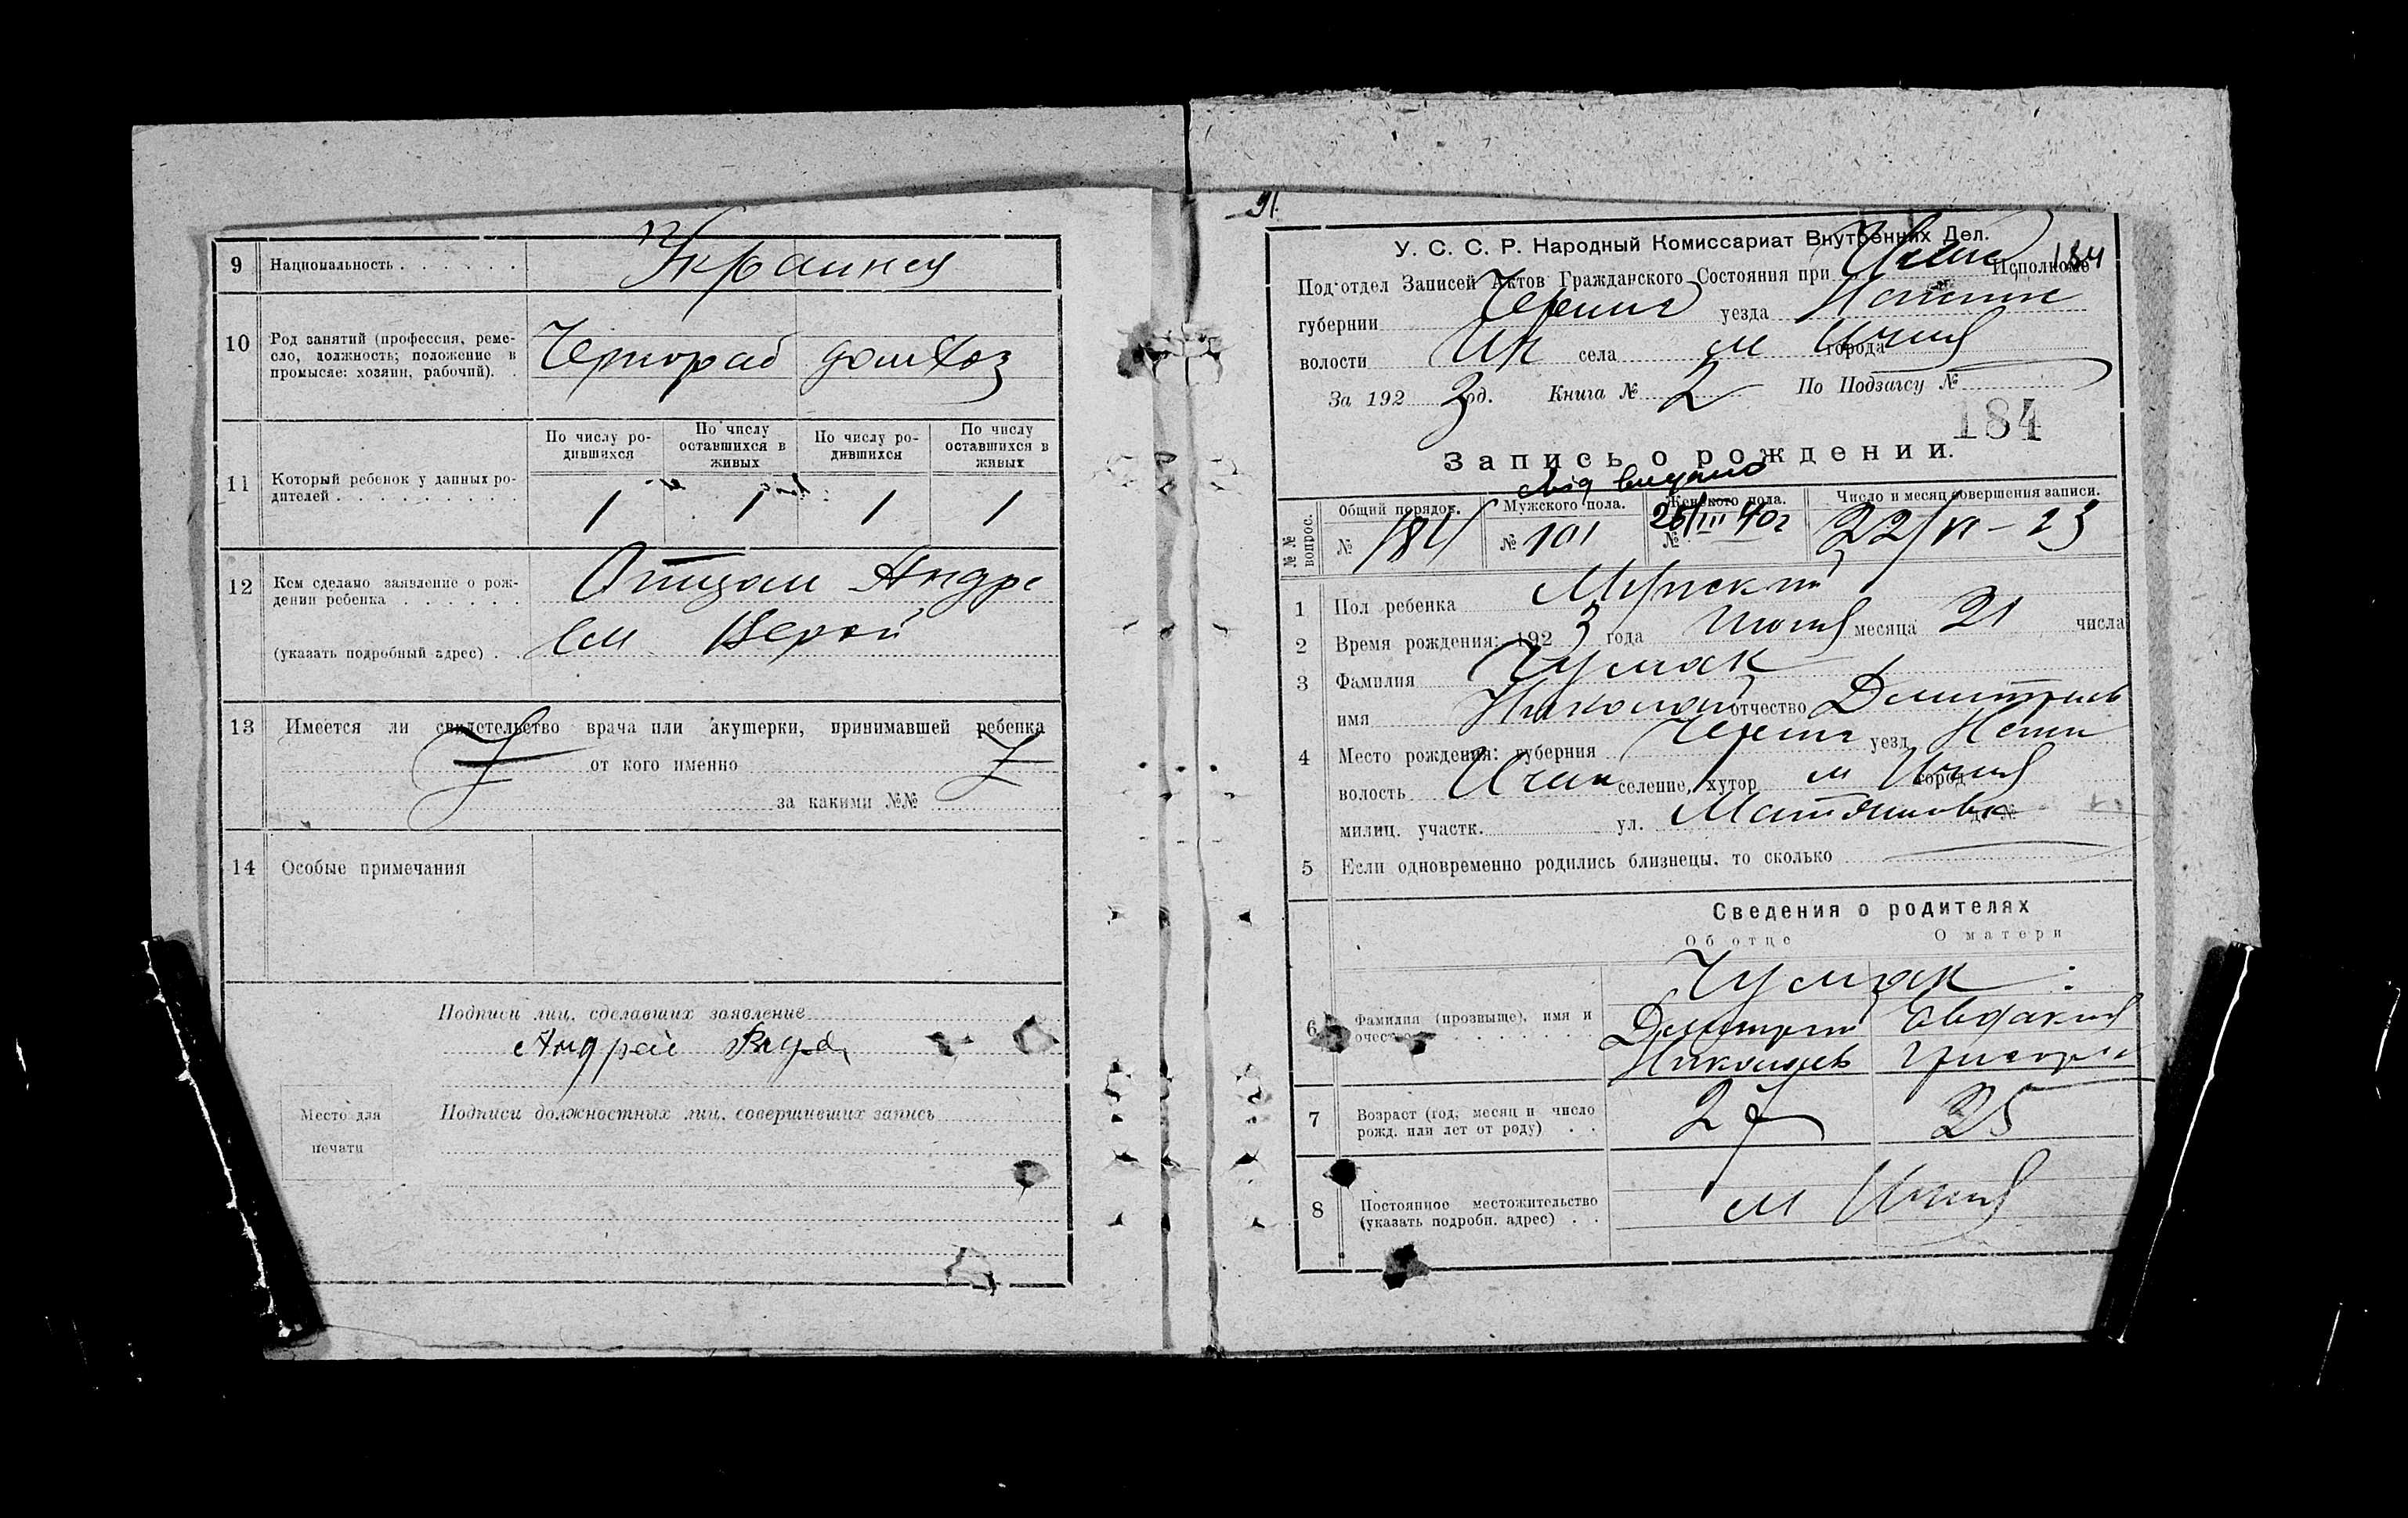 9 Национальность . . . . . . . Украинця
10 Род занятий (профессия, реме-
сло, должность; положение в
промысле: хозяин, рабочий). . Чернораб домхоз
11 Который ребенок у данных ро-
дителей . . . . . . . . . .
По числу ро-
дившихся
По числу
оставшихся в
живых
По числу ро-
дившихся
По числу
оставшихся в
живых
1 1 1 1
12 Кем сделано заявление о рож-
дении ребенка . . . . . . Отцом Андре
(указать подробный адрес) . . ем
13 Имеется ли свидетельство врача или акушерки, принимавшей ребенка
от кого именно
за какими №№
14 Особые примечания
Подписи лиц, сделавших заявление
Андрей
Место для
печати
Подписи должностных лиц, совершивших запись
91.
У. С. С. Р. Народный Комиссариат Внутренних Дел.
184
Под'отдел Записей Актов Гражданского Состояния при Ичне Исполкоме
губернии Черниг уезда Нежинс
волости Ич села м города Ичня
За 192 3 год. Книга № 2 По Подзагсу №
184
Запись о рождении.
видано
26/III 40г
№№ вопрос.
Общий порядок.
№ 184
Мужского пола.
№ 101
Женского пола.
№
Число и месяц совершения записи.
22/VI – 23
1 Пол ребенка Мужской
2 Время рождения: 192 3 года Июня месяца 21 числа
3 Фамилия Чумак
имя Николай отчество Дмитриев
4 Место рождения: губерния Черниг уезд Нежин
волость Ичан селение, хутор м Ичня город
милиц. участк. ул. д. №
5 Если одновременно родились близнецы, то сколько
Сведения о родителях
Об отце О матери
6 Фамилия (прозвище), имя и
отчество . . . . . . .
Чумак
Дмитрий Евдакия
Николаев Григорьев
7 Возраст (год, месяц и число
рожд. или лет от роду) . . 27 25
8 Постоянное местожительство
(указать подробн. адрес) . . м Ичня